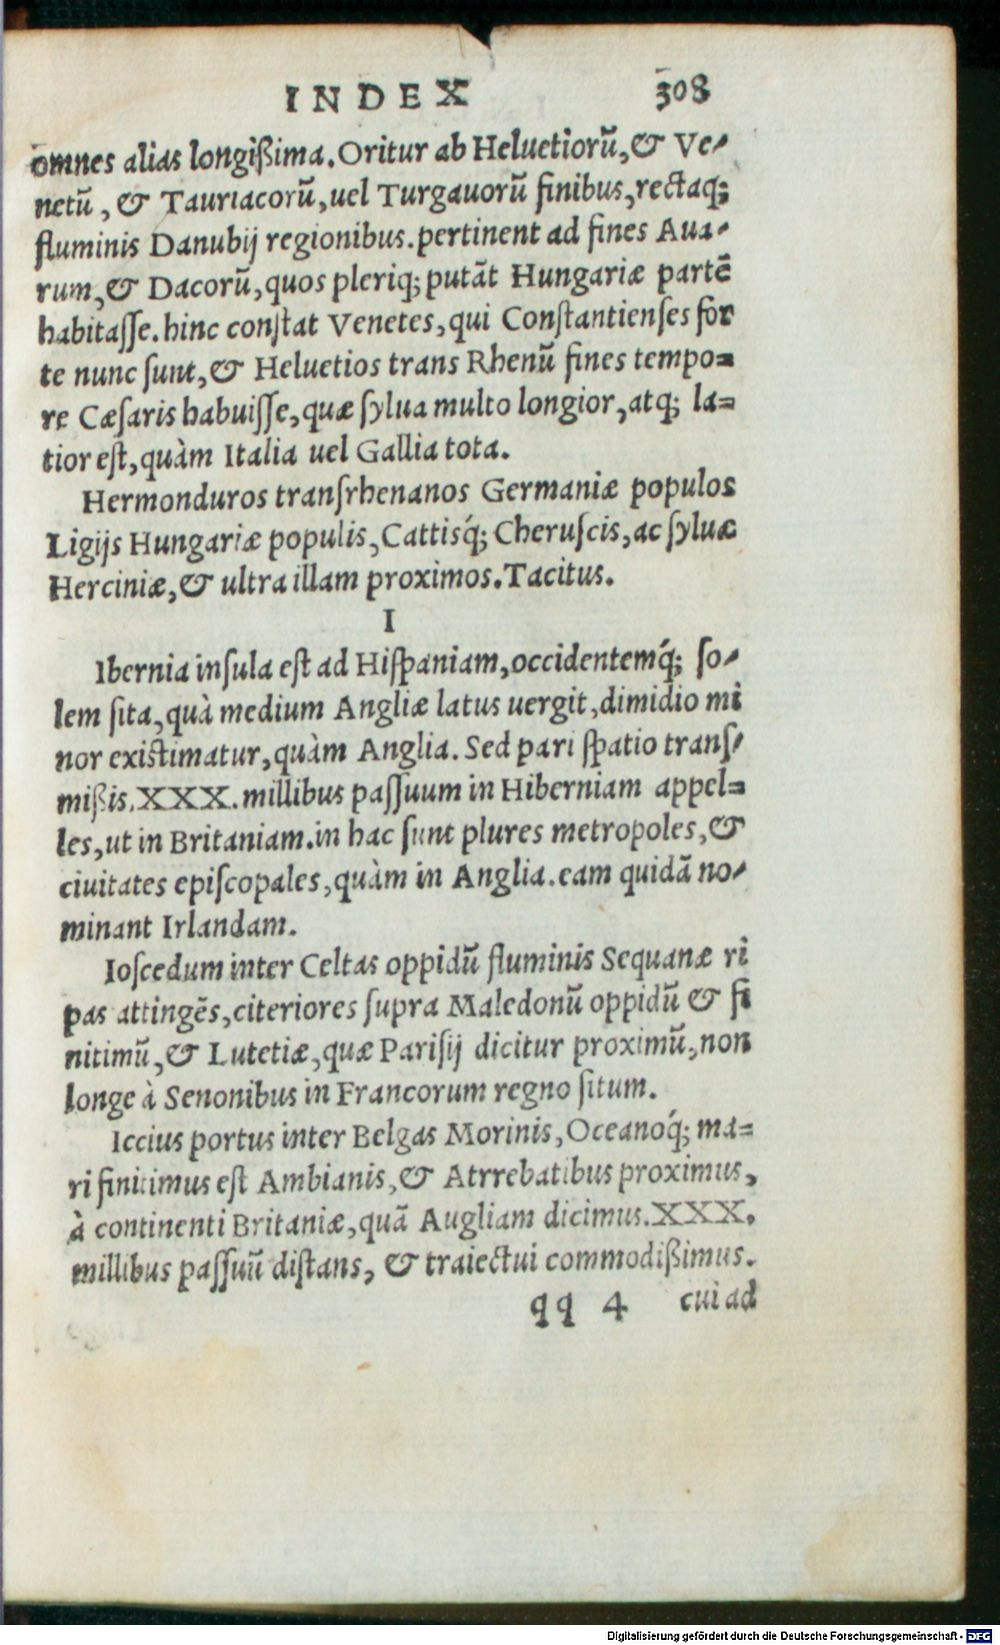 INDEX 308
omnes alias longißima. Oritur ab Heluetiorũ, & Ve-
netũ, & Tauriacorũ, uel Turgauorũ finibus, rectaq;
fluminis Danubij regionibus. pertinent ad fines Aua-
rum, & Dacorũ, quos pleriq; putãt Hungariæ partẽ
habitaſſe. hinc conſtat Venetes, qui Conſtantienſes for
te nunc ſunt, & Heluetios trans Rhenũ fines tempo=
re Cæſaris habuiſſe, quæ ſylua multo longior, atq; la=
tior eſt, quàm Italia uel Gallia tota.
Hermonduros tranſrhenanos Germaniæ populos
Ligijs Hungariæ populis, Cattisq́; Cheruſcis, ac ſyluæ
Herciniæ, & ultra illam proximos. Tacitus.
I
Ibernia inſula eſt ad Hiſpaniam, occidentemq́; ſo-
lem ſita, quà medium Angliæ latus uergit, dimidio mi
nor existimatur, quàm Anglia. Sed pari ſpatio tranſ-
mißis. XXX. millibus paſſuum in Hiberniam appel=
les, ut in Britaniam. in hac ſunt plures metropoles, &
ciuitates epiſcopales, quàm in Anglia. eam quidã no-
minant Irlandam.
Ioſcedum inter Celtas oppidũ fluminis Sequanæ ri
pas attingẽs, citeriores ſupra Maledonũ oppidũ & fi
nitimũ, & Lutetiæ, quæ Pariſij dicitur proximũ, non
longe à Senonibus in Francorum regno ſitum.
Iccius portus inter Belgas Morinis, Oceanoq́; ma=
ri finitimus eſt Ambianis, & Atrrebatibus proximus,
à continenti Britaniæ, quã Augliam dicimus. XXX.
millibus paſſuũ diſtans, & traiectui commodißimus.
qq 4 cui ad
Digitalisierung gefördert durch die Deutsche Forschungsgemeinschaft - DFG